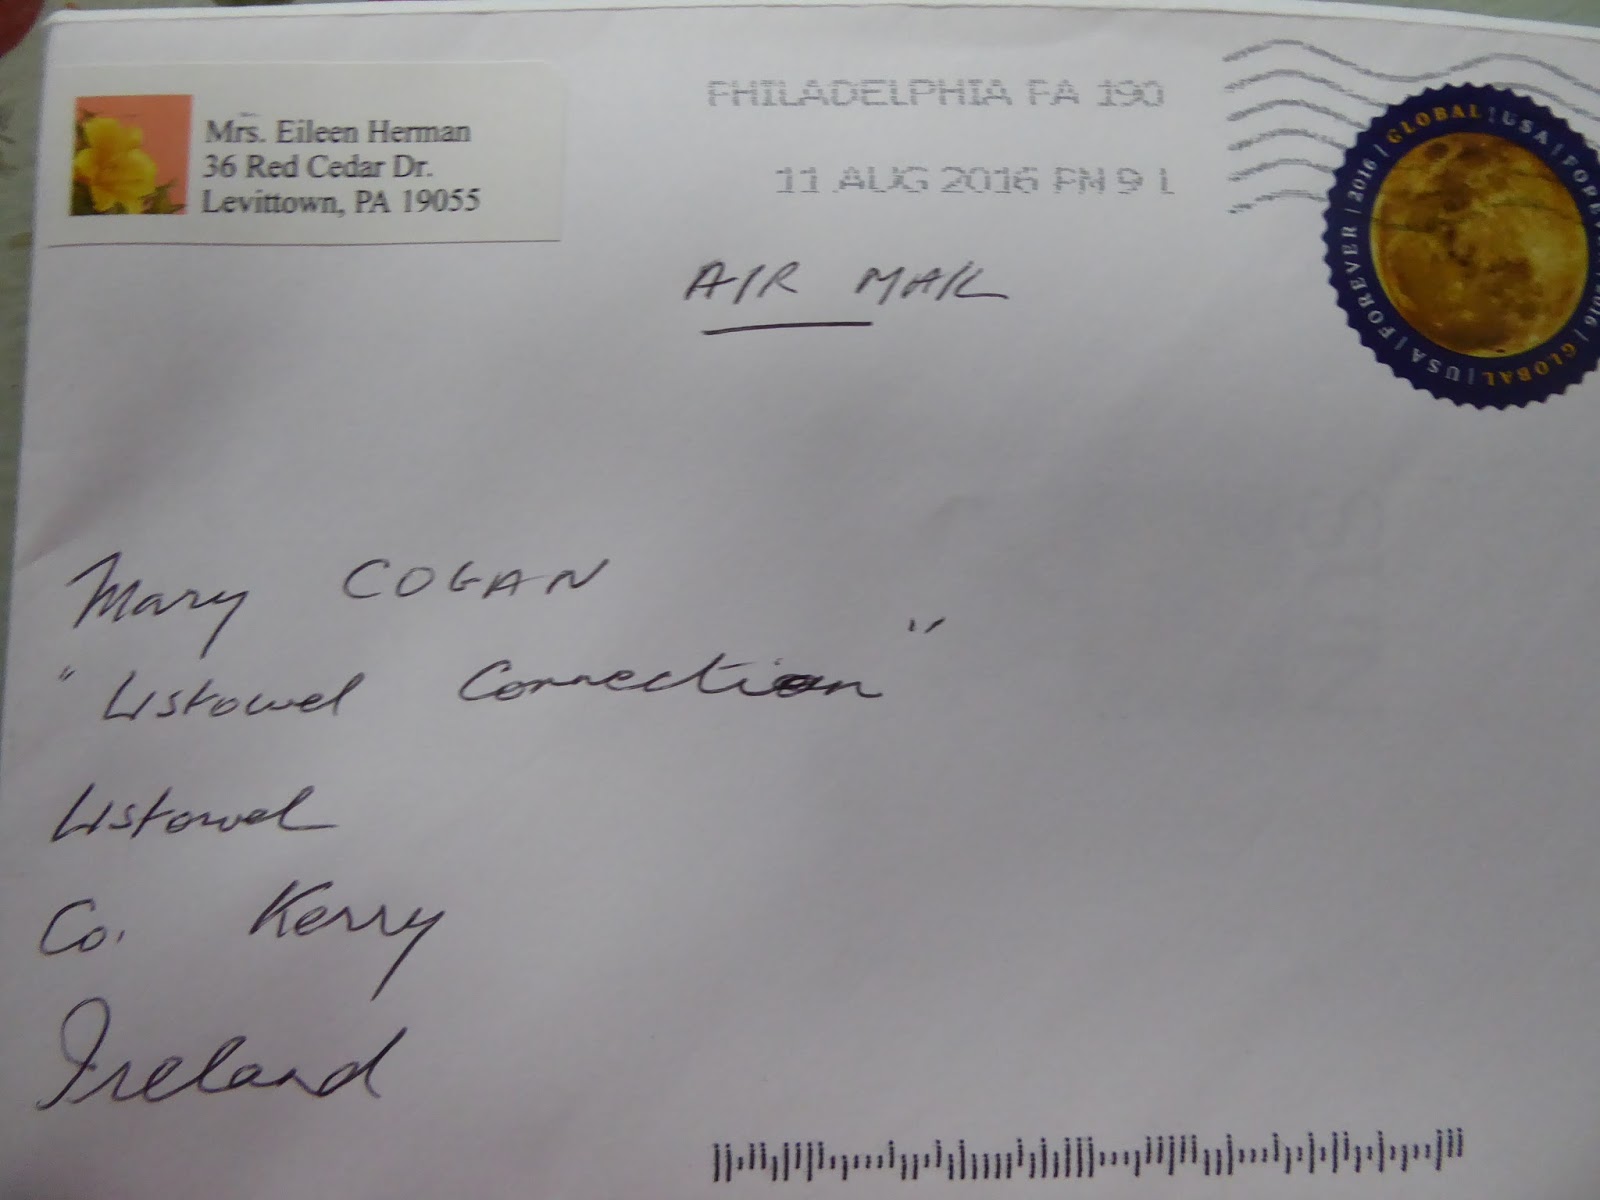 Mrs. Eileen Herman
36 Red Cedar Dr.
Levittown, PA 19055
PHILADELPHIA PA 190
11 AUG 2016 PM 9 L
GLOBAL | USA | FOREVER | 2016 | GLOBAL | USA | FOREVER | 2016 |
AIR MAIL
Mary COGAN
"Listowel Connection"
Listowel
Co. Kerry
Ireland